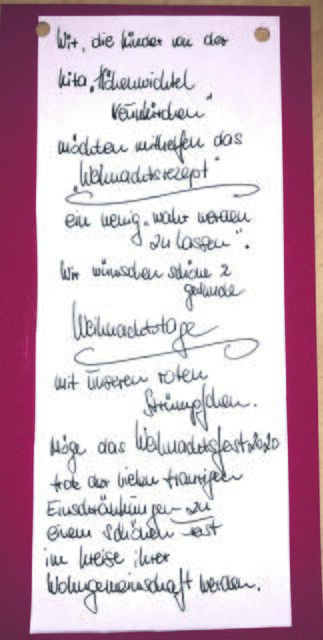 Wir, die Kinder von der
Kita „Höhenwichtel
Neunkirchen"
möchten mithelfen das
„Weihnachtsrezept"
ein wenig „wahr werden
zu lassen".
Wir wünschen schöne &
gesunde
Weihnachtstage
mit unseren roten
Strümpfchen.
Möge das Weihnachtsfest 2020
trotz der vielen traurigen
Einschränkungen zu
einem schönen Fest
im Kreise ihrer
Wohngemeinschaft werden.